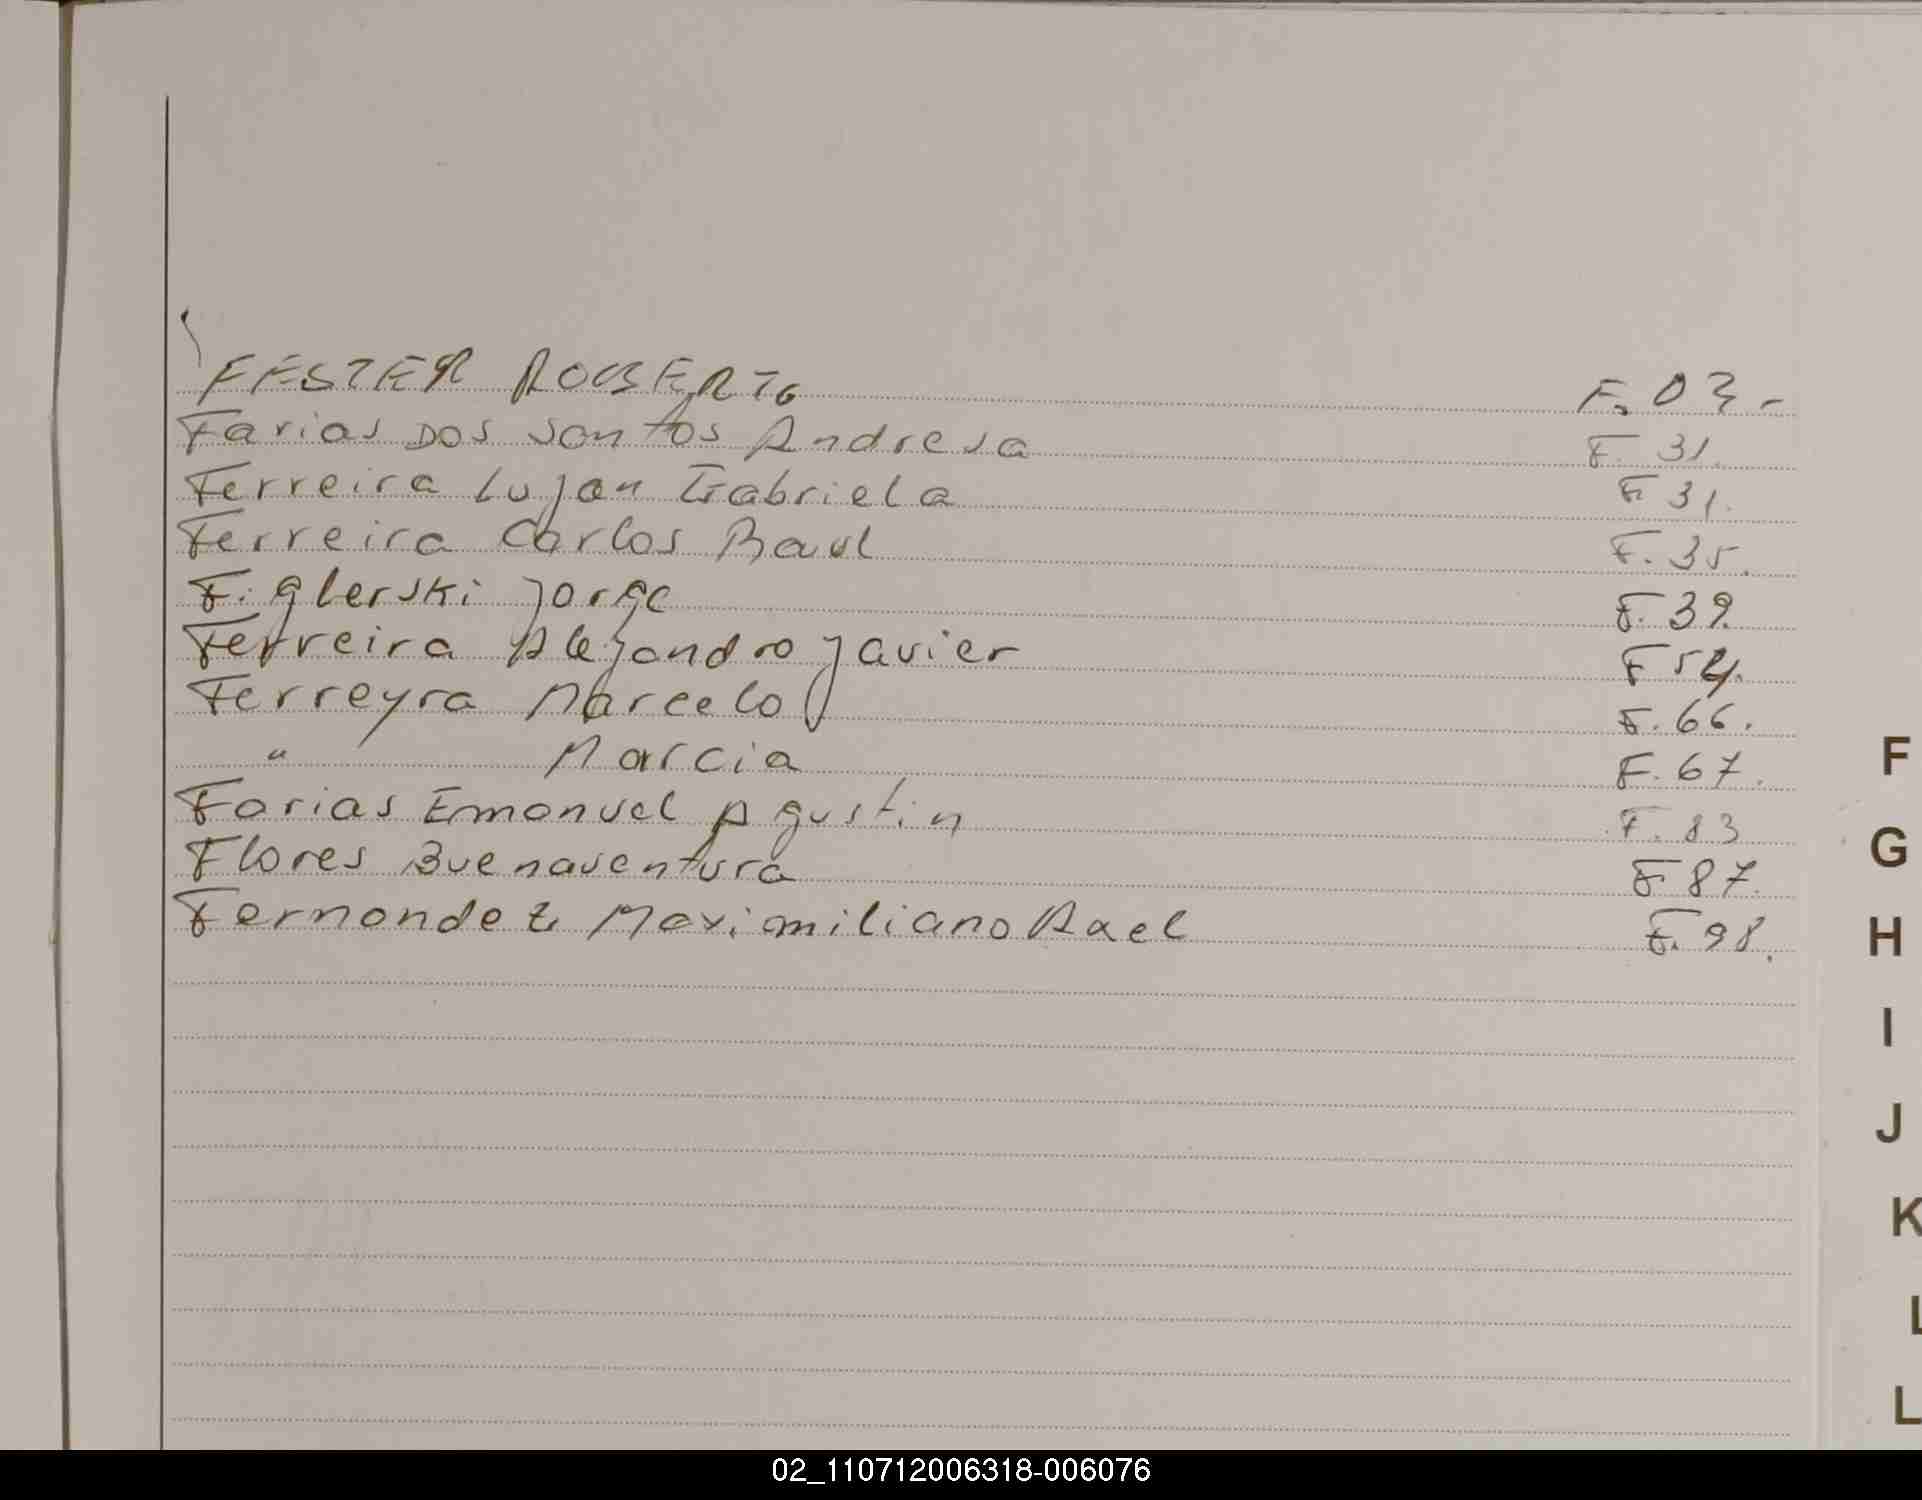 FESTER ROBERTO F. 03-
Farias Dos Santos Andresa F. 31.
Ferreira Lujan Gabriela F. 31.
Ferreira Carlos Raul F. 35.
Figlerski Jorge F. 39.
Ferreira Alejandro Javier F 54.
Ferreyra Marcelo F. 66.
" Marcia F. 67.
Farias Emanuel Agustin F. 83
Flores Buenaventura F 87.
Fernandez Maximiliano Rael F. 98.
F
G
H
I
J
K
L
L
02_110712006318-006076